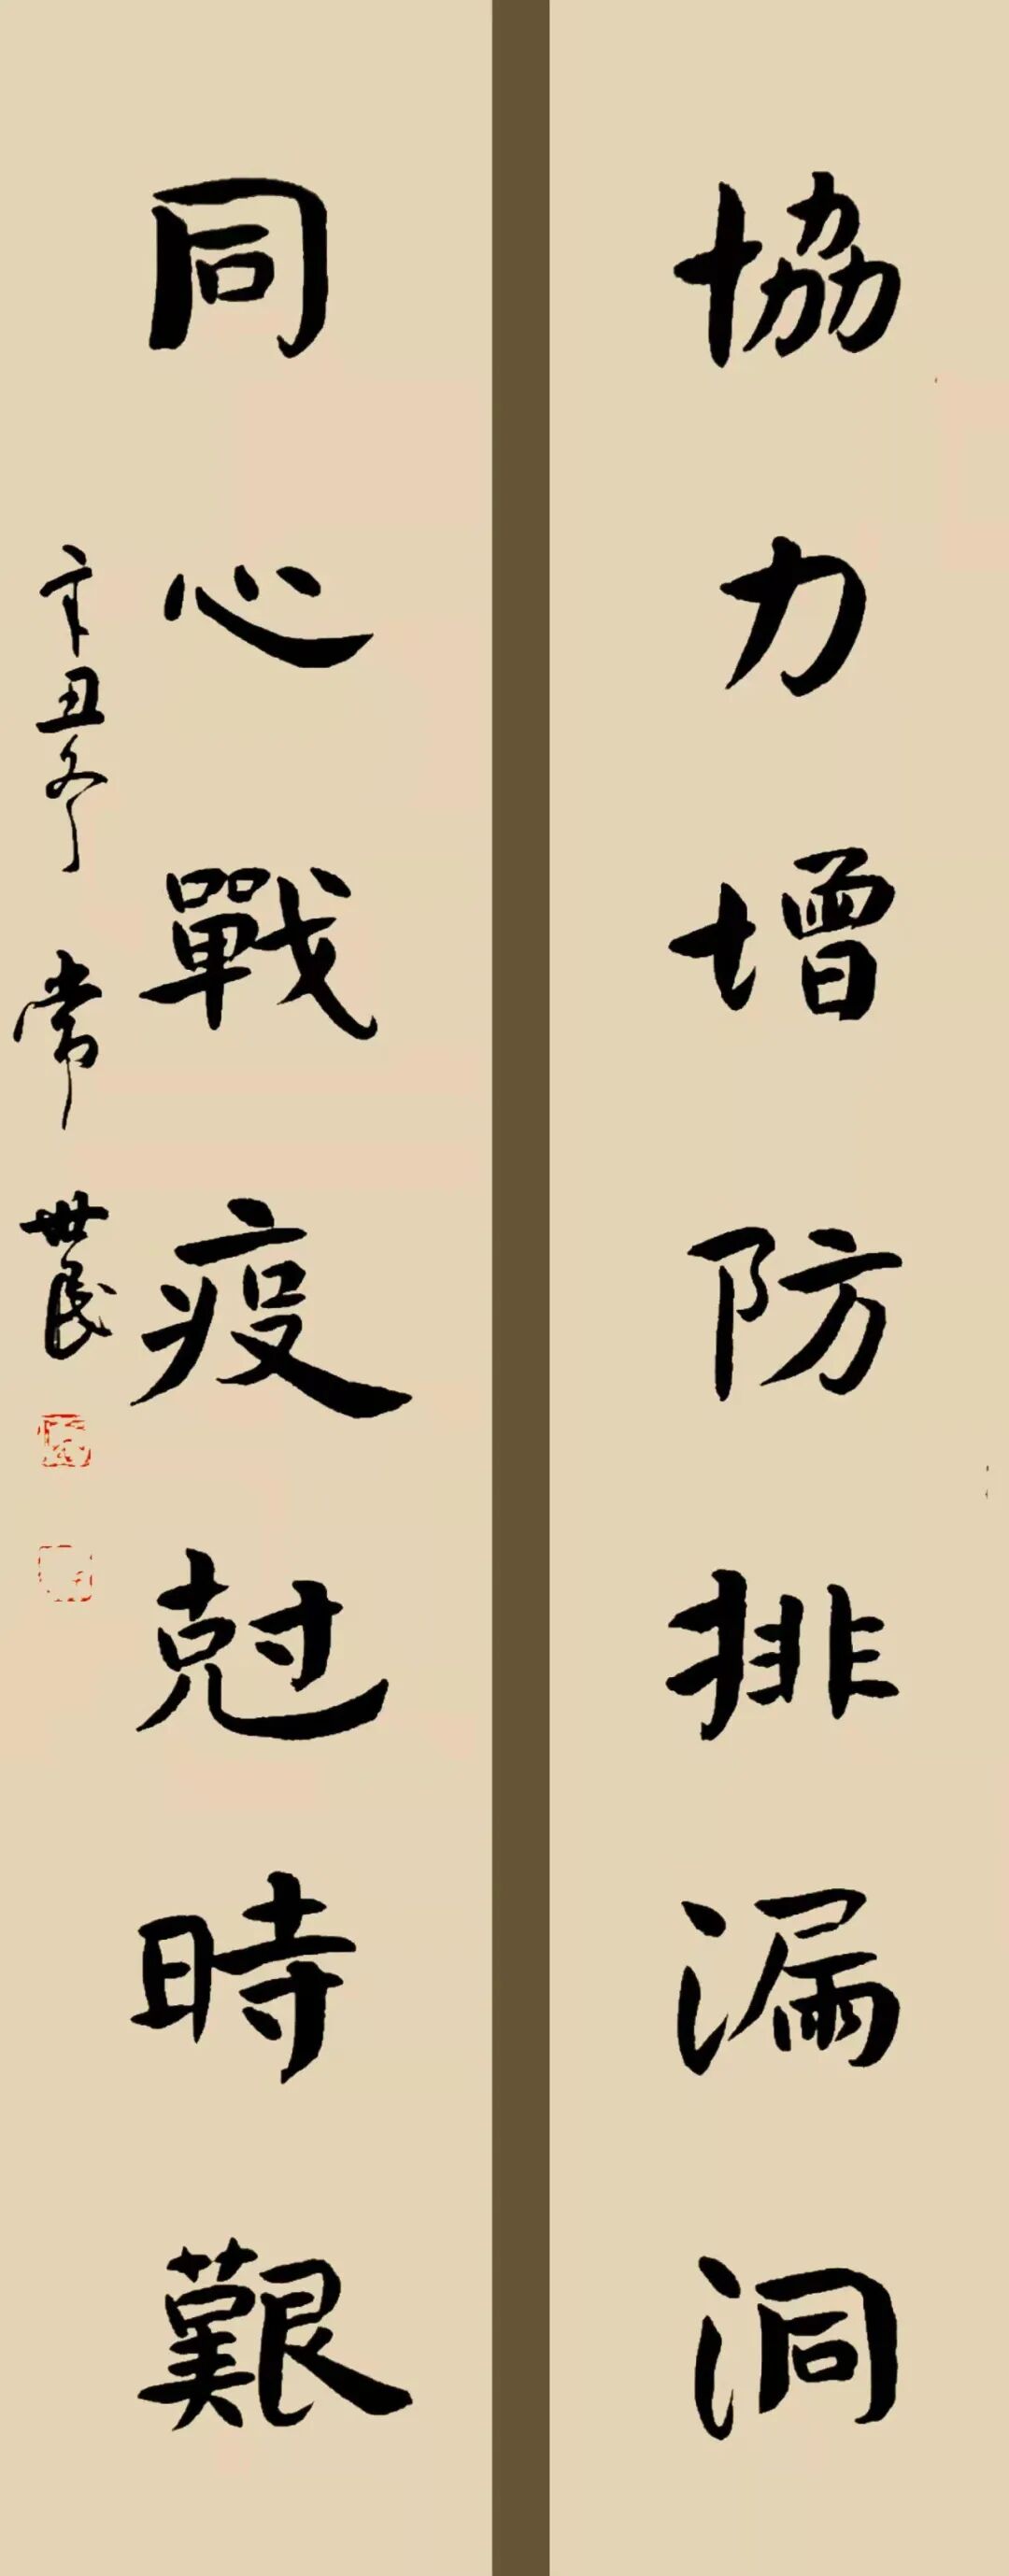 協力增防排漏洞
同心戰疫尅時艱
辛丑冬 常世民